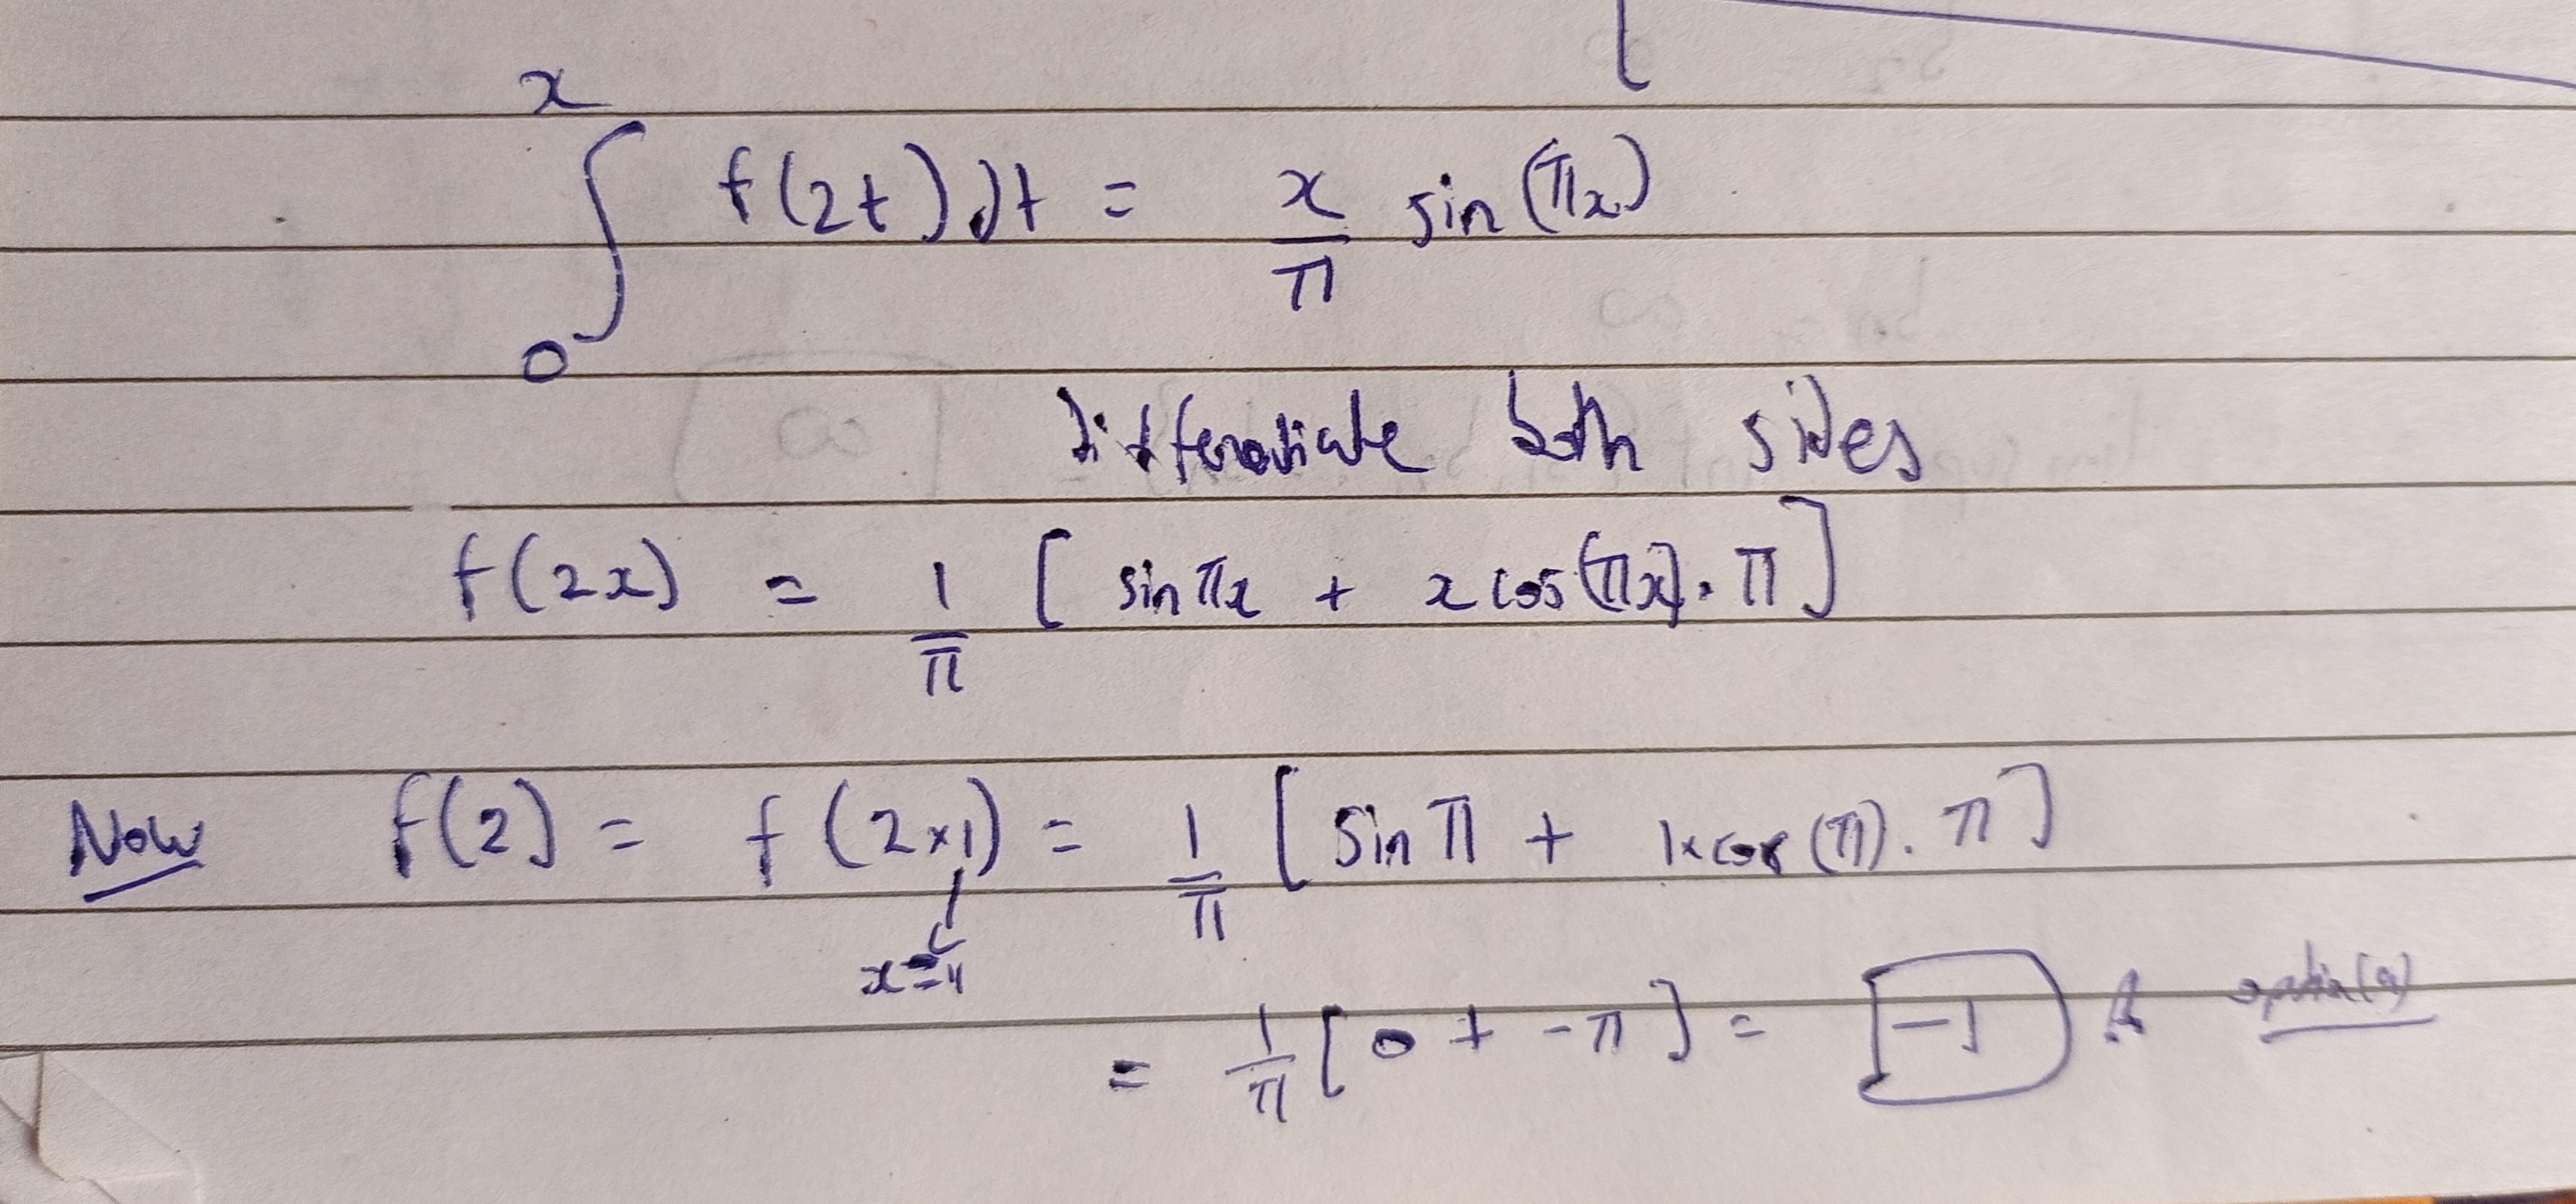 ∫₀ˣ f(2t) dt = x/π sin(πx)
differentiate both sides
f(2x) = 1/π [ sin πx + x cos(πx) · π ]
Now f(2) = f(2×1) = 1/π [ sin π + 1×cos(π) · π ]
= 1/π [ 0 + -π ] = -1 option(a)